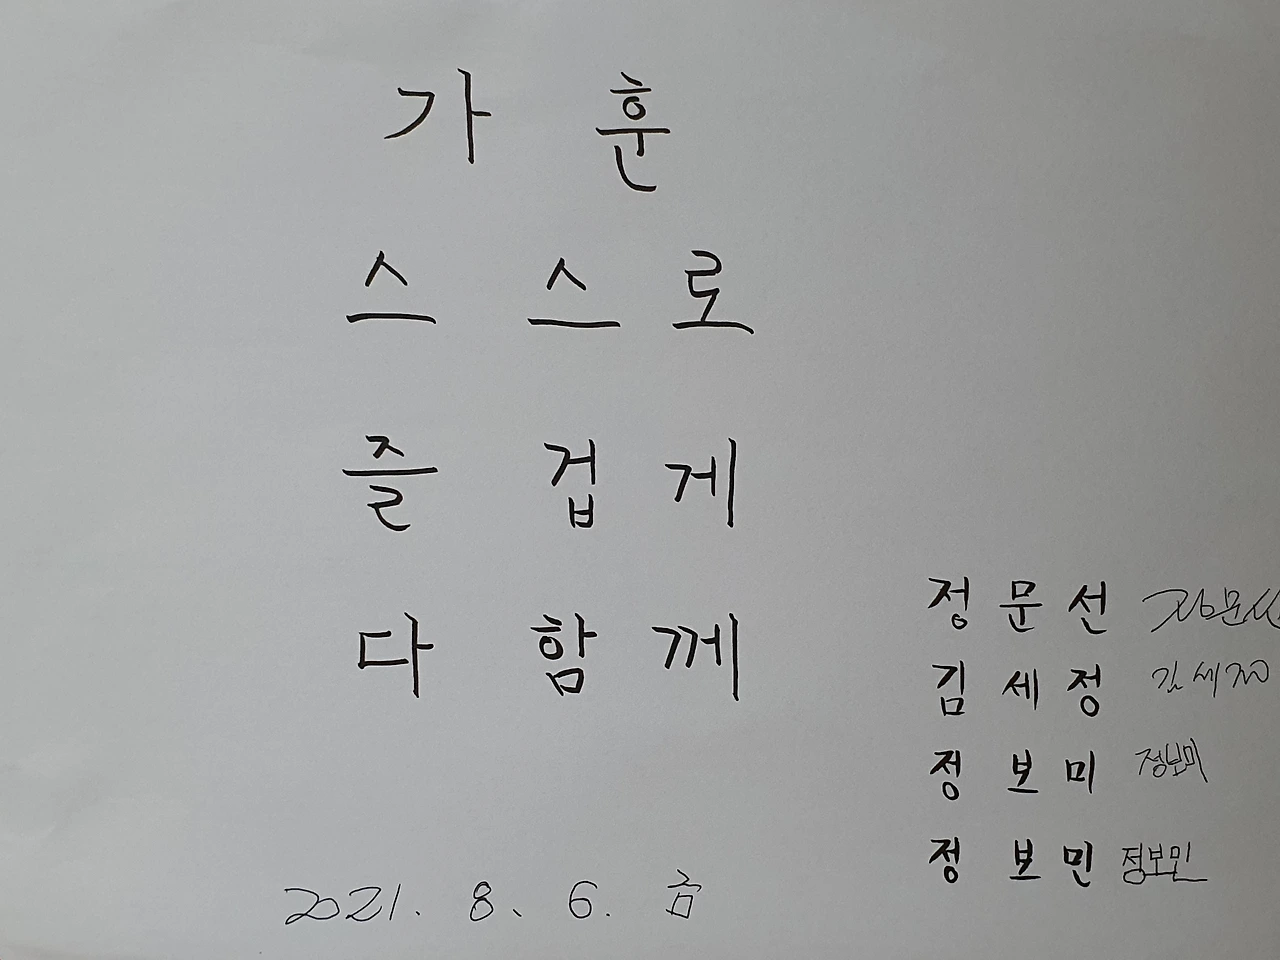 가 훈
스 스 로
즐 겁 게
다 함 께
정 문 선 정문선
김 세 정 김세정
정 보 미 정보미
정 보 민 정보민
2021. 8. 6. 금